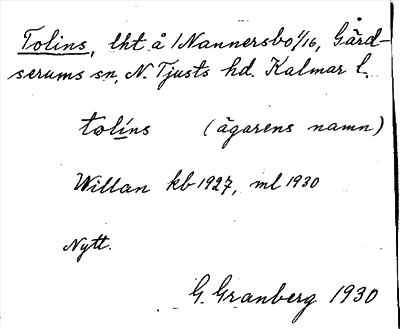 Tolins, lht å 1 Nannersbo 1/16, Gård-
serums sn, N. Tjusts hd. Kalmar l.
tolíns (ägarens namn)
Willan kb 1927, ml 1930
Nytt.
G. Granberg 1930